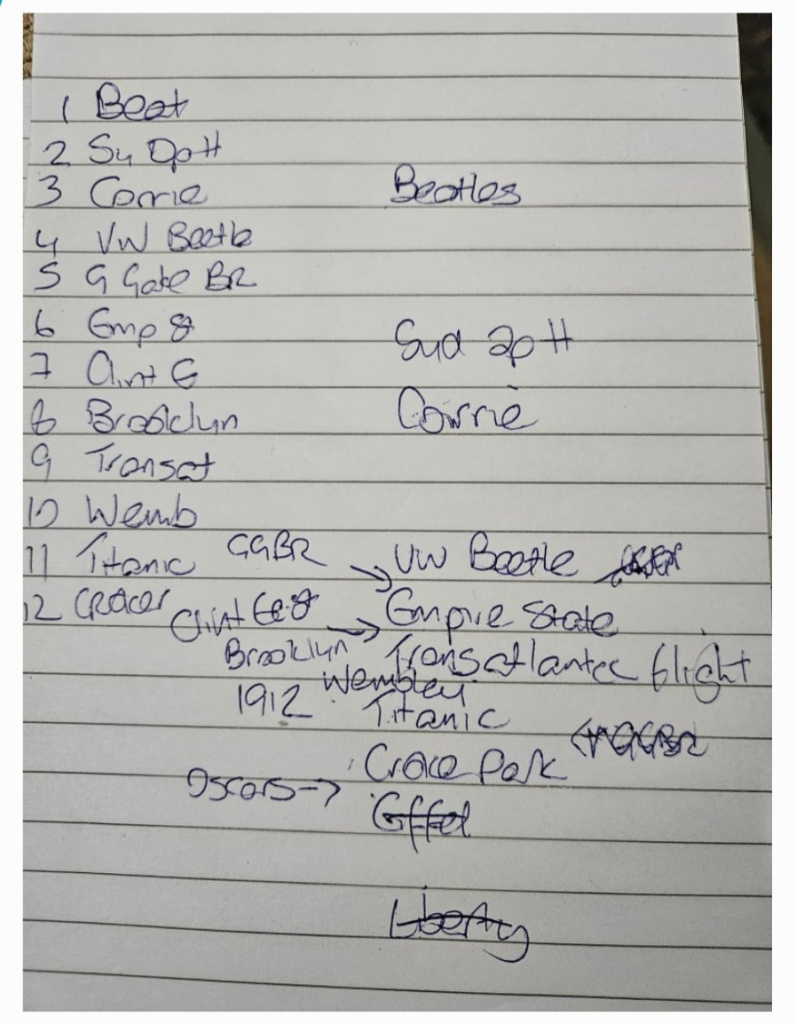 1 Beat
2 Sy Op H
3 Corrie
Beatles
4 VW Beetle
5 G Gate BR
6 Emp St
Syd Op H
7 Clint E
8 Brooklyn
Corrie
9 Transat
10 Wemb
11 Titanic GGBR → VW Beetle
12 CROCER Clint East → Empire State
Brooklyn Transatlantic flight
1912 Wembley Titanic
Croce Park
Oscars → Eiffel
Liberty